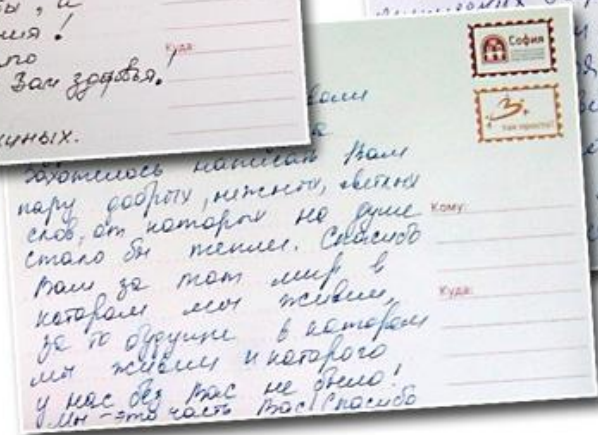 ы, и
ния!
Вам здоровья!
иных.
Куда:
Захотелось написать Вам
пару добрых, нежных, светлых
слов, от которых на душе
стало бы теплее. Спасибо
Вам за тот мир в
котором мы живём,
за то будущее в котором
мы живём и которого
у нас без Вас не было!
Мы - это часть Вас! Спасибо
София
Кому:
Куда: